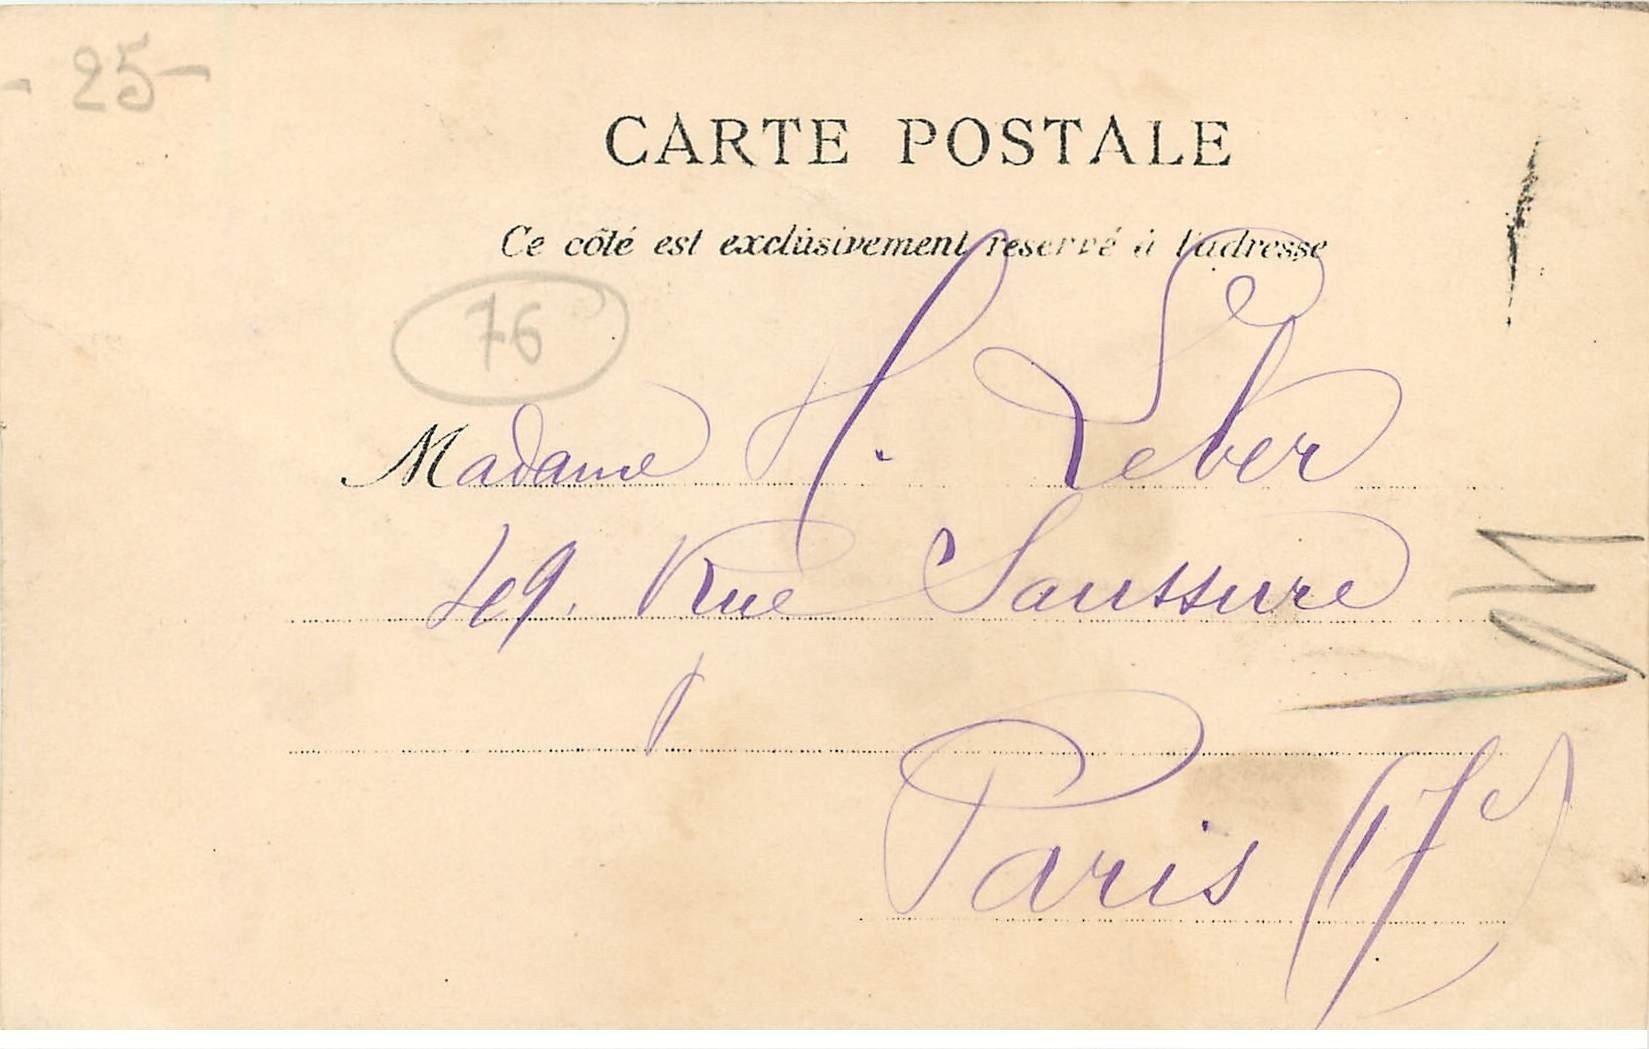 - 25 -
CARTE POSTALE
Ce côté est exclusivement reservé à l'adresse
76
Madame H. Leber
49. Rue Saussure
Paris (17e)